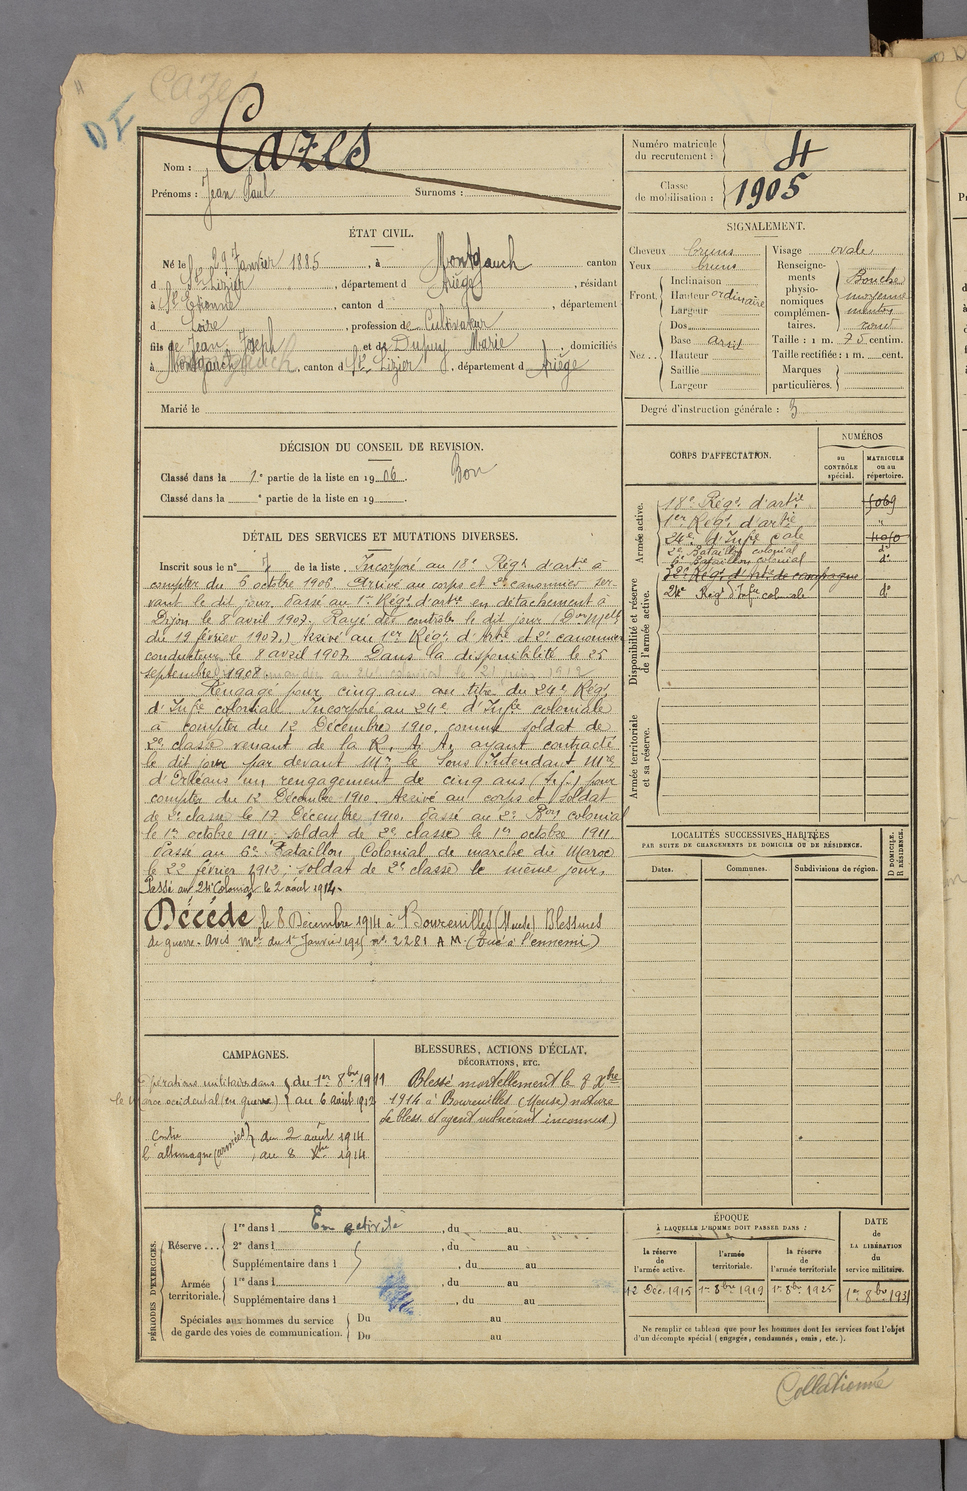 Cazes
DI
Nom : Cazes
Prénoms : Jean Paul Surnoms :
Numéro matricule
du recrutement : 4
Classe
de mobilisation : 1905
ÉTAT CIVIL.
Né le 29 Janvier 1885, à Montgauch canton
d St Lizier, département d Ariège, résidant
à St Etienne, canton d , département
d Loire, profession de Cultivateur
fils de Jean Joseph et de Dupuy Marie, domiciliés
à Montgauch, canton d St Lizier, département d Ariège
Marié le
SIGNALEMENT.
Cheveux bruns
Yeux bruns
Front. Inclinaison
Hauteur ordinaire
Largeur
Nez. Dos
Base
Hauteur
Saillie
Largeur
Visage ovale
Renseigne-
ments
physio-
nomiques
complémen-
taires.
Bouche
moyenne
menton
rond
Taille : 1 m. 70 centim.
Taille rectifiée : 1 m. cent.
Marques
particulières.
Degré d'instruction générale : 3
DÉCISION DU CONSEIL DE REVISION.
Classé dans la 1e partie de la liste en 1906. Bon
Classé dans la e partie de la liste en 19 .
CORPS D'AFFECTATION.
NUMÉROS
au
CONTRÔLE
spécial.
MATRICULE
ou au
répertoire.
Armée active.
18e Régt d'artie 5069
1er Régt d'artie "
24e d'Infie cale 4010
2e Bataillon colonial do
6e Bataillon colonial do
Disponibilité et réserve
de l'armée active.
32e Régt d'Artie de campagne
24e Regt d'Infie coloniale do
Armée territoriale
et sa réserve.
DÉTAIL DES SERVICES ET MUTATIONS DIVERSES.
Inscrit sous le n° 7 de la liste. Incorporé au 18e Régt d'artie à
compter du 6 octobre 1906. Arrivé au corps et 2e canonnier ser-
vant le dit jour. Passé au 1er Régt d'artie en détachement à
Dijon le 8 avril 1907. Rayé des contrôles le dit jour (Don Mlle
du 19 février 1907.) Arrivé au 1er Régt d'Artie et 2e canonnier
conducteur le 8 avril 1907. Dans la disponibilité le 25
septembre 1908
Rengagé pour cinq ans au titre du 24e Régt
d'Infie coloniale. Incorporé au 24e d'Infie coloniale
à compter du 12 Décembre 1910, comme soldat de
2e classe venant de la R. A. A. ayant contracté
le dit jour par devant Mr le Sous Intendant Mre
d'Orléans un rengagement de cinq ans pour
compter du 12 Décembre 1910. Arrivé au corps et soldat
de 2e classe le 17 Décembre 1910. Passé au 2e Bon colonial
le 1er octobre 1911. Soldat de 2e classe le 1er octobre 1911.
Passé au 6e Bataillon Colonial de marche du Maroc
le 22 février 1912; soldat de 2e classe le même jour.
Passé au 24e Colonial le 2 août 1914.
Décédé le 8 Décembre 1914 à Boureuilles (Meuse) Blessures
de guerre. Avis mel du 1er Janvier 1915 n° 2281 A M. (tué à l'ennemi)
LOCALITÉS SUCCESSIVES HABITÉES
PAR SUITE DE CHANGEMENTS DE DOMICILE OU DE RÉSIDENCE.
Dates.
Communes.
Subdivisions de région.
D DOMICILE.
R RÉSIDENCE.
CAMPAGNES.
Opérations militaires dans du 1er 8bre 1911
le Maroc occidental (en guerre) au 6 août 1912
Contre du 2 août 1914
l'allemagne (armées) au 8 Xbre 1914
BLESSURES, ACTIONS D'ÉCLAT,
DÉCORATIONS, ETC.
Blessé mortellement le 8 Xbre
1914 à Boureuilles (Meuse) nature
de bless. et agent vulnérant inconnus)
PÉRIODES D'EXERCICES.
Réserve...
1re dans l En activité, du au
2e dans l , du au
Supplémentaire dans l , du au
Armée
territoriale.
1re dans l , du au
Supplémentaire dans l , du au
Spéciales aux hommes du service
de garde des voies de communication.
Du au
Du au
ÉPOQUE
À LAQUELLE L'HOMME DOIT PASSER DANS :
la réserve
de
l'armée active.
l'armée
territoriale.
la réserve
de
l'armée territoriale
DATE
de
LA LIBÉRATION
du
service militaire.
12 Déc. 1915 1er 8bre 1919 1er 8bre 1925 1er 8bre 1931
Ne remplir ce tableau que pour les hommes dont les services font l'objet
d'un décompte spécial (engagés, condamnés, omis, etc.).
Collationné